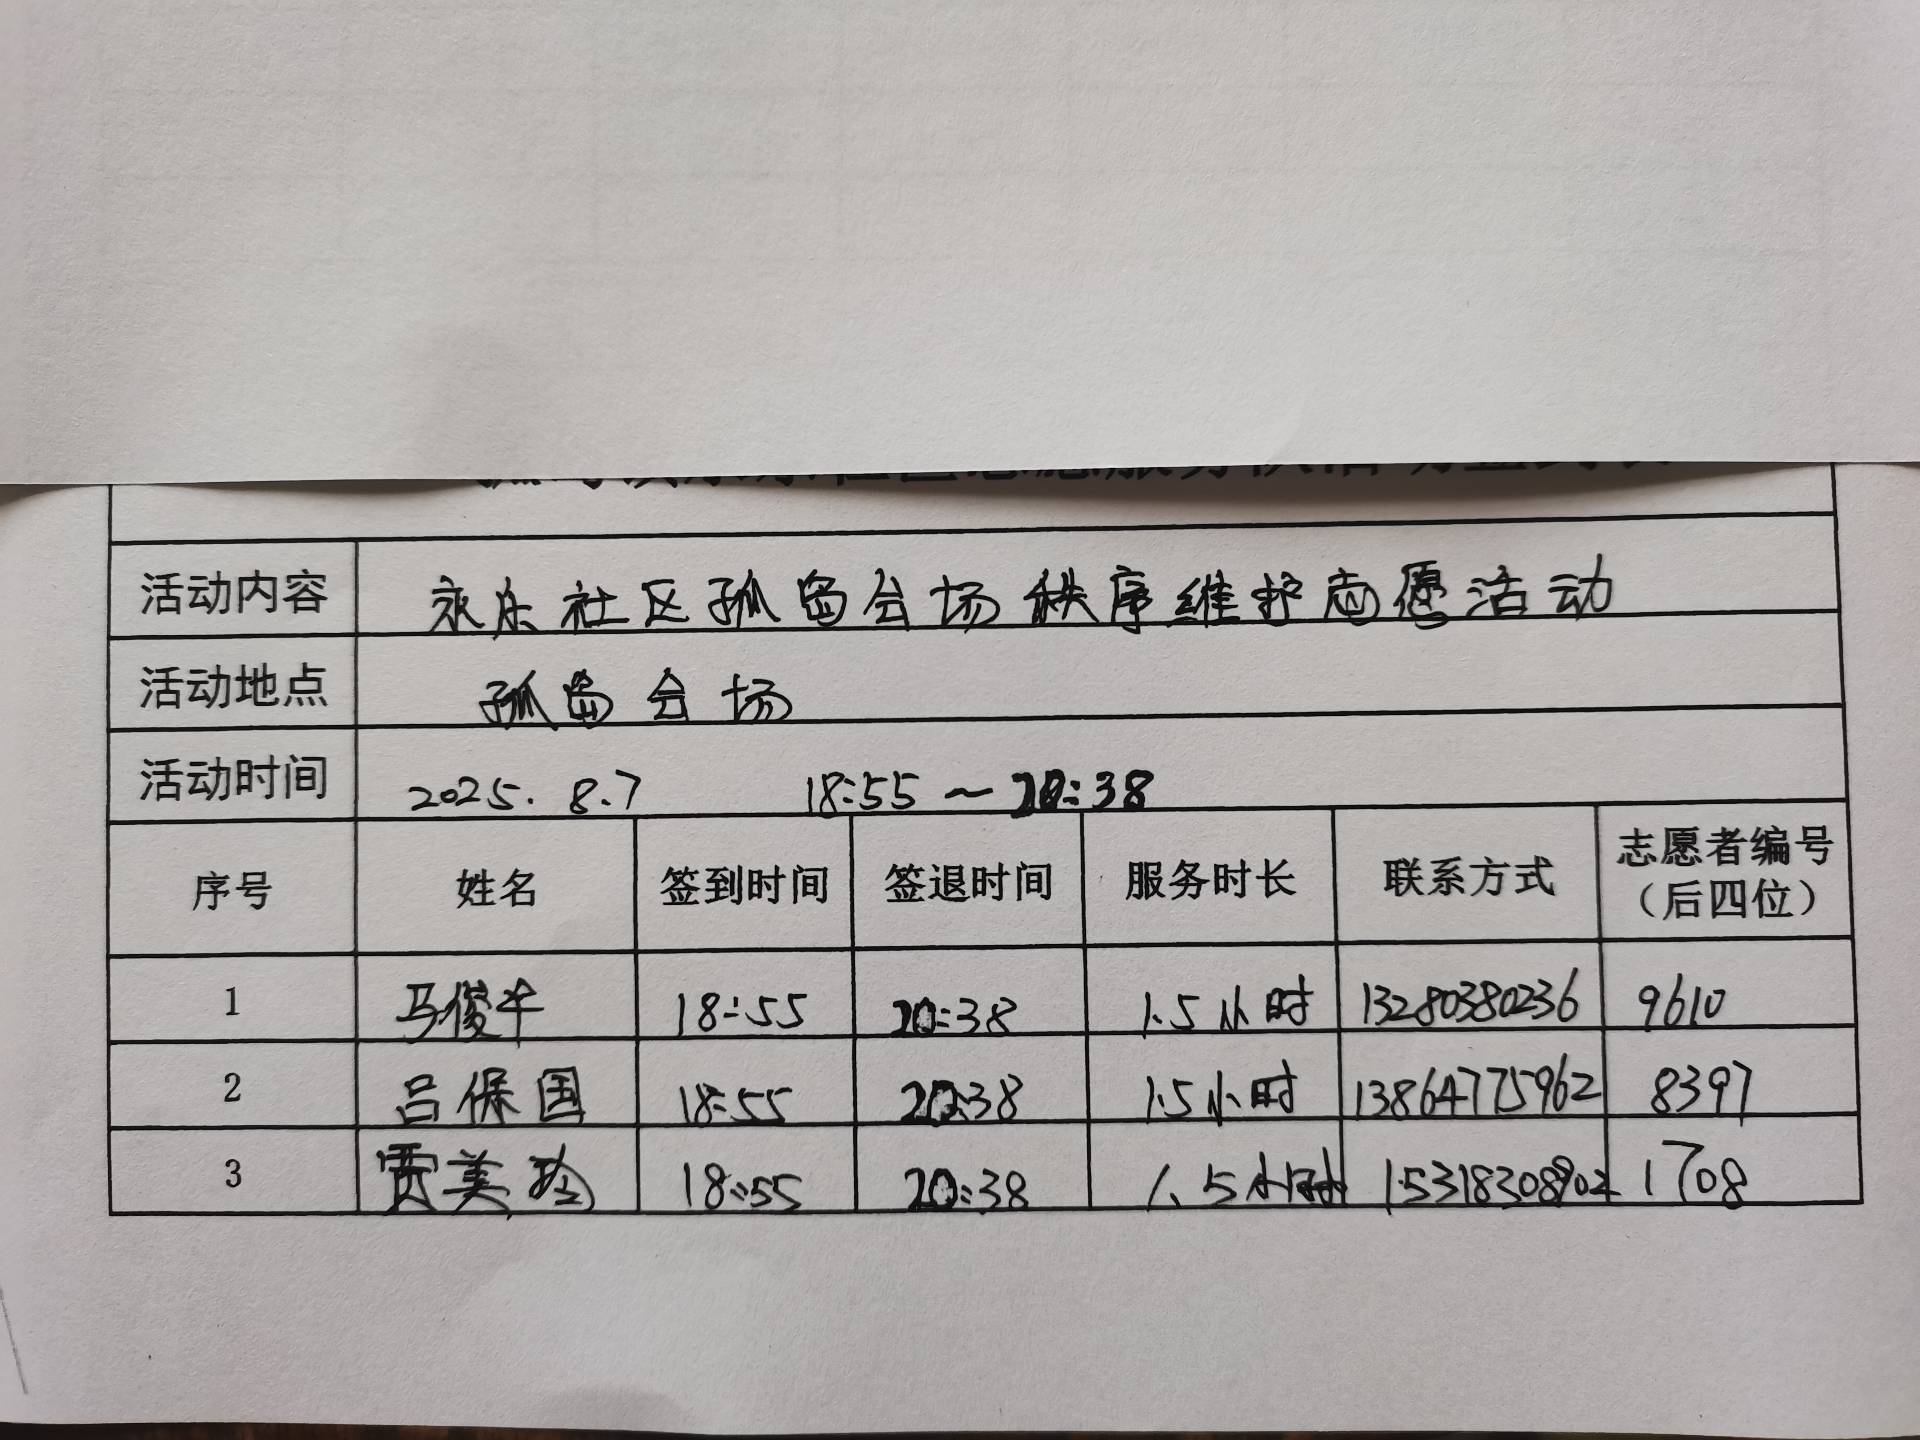 活动内容 永乐社区孤岛会场秩序维护志愿活动
活动地点 孤岛会场
活动时间 2025.8.7 18:55~20:38
序号 姓名 签到时间 签退时间 服务时长 联系方式 志愿者编号
（后四位）
1 马俊牛 18:55 20:38 1.5小时 13280380236 9610
2 吕保国 18:55 20:38 1.5小时 13864775962 8397
3 贾美玲 18:55 20:38 1.5小时 15318308902 1708